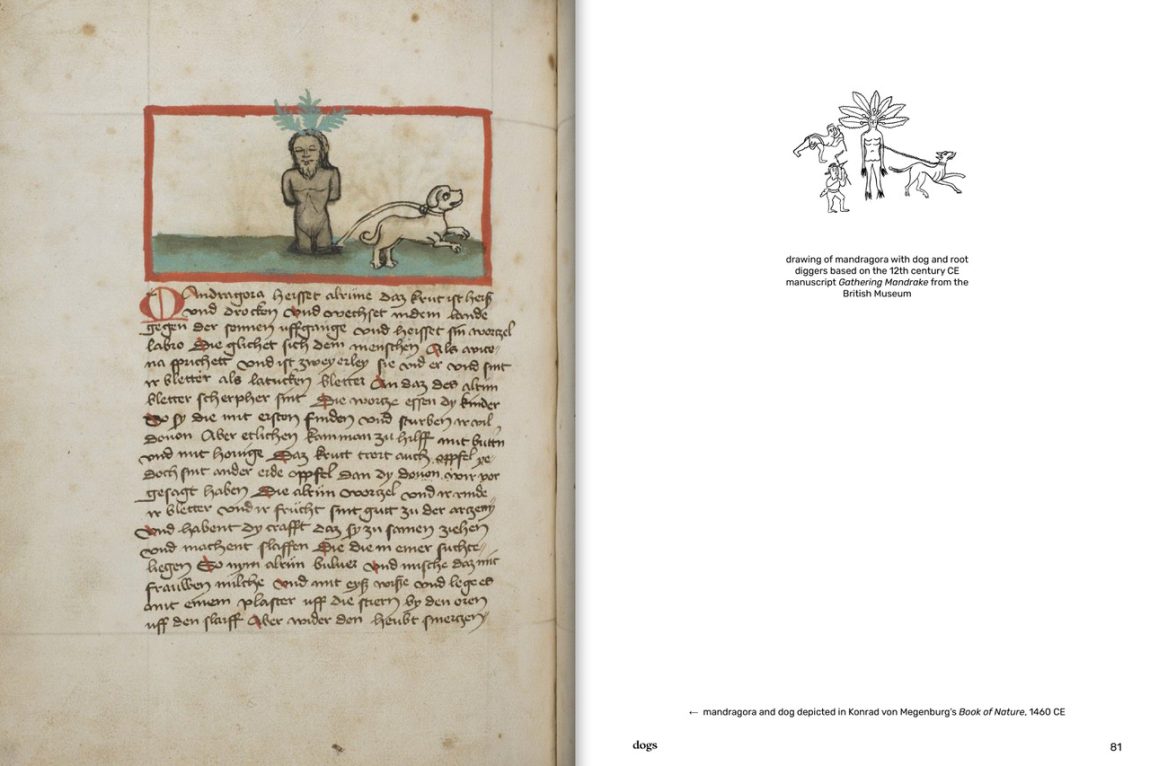 Mandragora heisset alrune daz krut ist heiß
vnd drocken Vnd wechset in dem lande
gegen der sonnen uffgange vnd heisset sin wortzel
labro Die glichet sich dem menschen Als avice-
na sprichett vnd ist zweyerley sie vnd er vnd sint
ir bletter als latucken bletter An daz des alrun
bletter scherpher sint Die wortze essen dy kinder
So sy die mit ersten finden vnd sturben ir vil
douon Aber etlichen kamman zu hilff mit buttern
vnd mit honige Daz krutt treit auch öppfel ye-
doch sint ander erde oppfel dan dy douon wir vor
gesagt haben Die alrun wortzel vnd ir rinde
ir bletter vnd ir frücht sint gutt zu der artzeny
Vnd habent dy crafft daz sy zu samen ziehen
vnd machent slaffen Die die in einer suchte
liegen So nym alrun puluer Vnd mische daz mit
frauwen milche Vnd mit eyß wiße vnd lege es
mit einem plaster uff die stiern by den oren
uff den slaiff Aber wider den heubt smertzen
drawing of mandragora with dog and root
diggers based on the 12th century CE
manuscript Gathering Mandrake from the
British Museum
← mandragora and dog depicted in Konrad von Megenburg's Book of Nature, 1460 CE
dogs
81